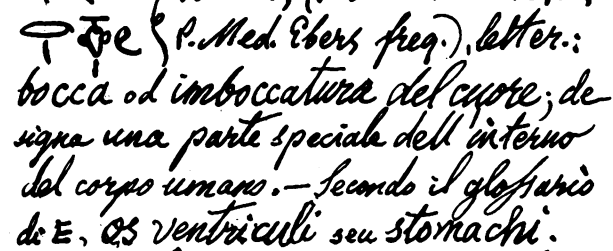 (P. Med. Ebers freq.), letter.:
bocca od imboccatura del cuore; de-
signa una parte speciale dell'interno
del corpo umano. — Secondo il glossario
di E, os ventriculi seu stomachi.